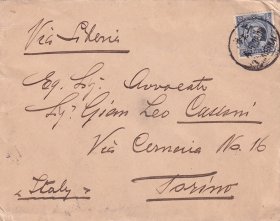 Via Siberia
Eg. Sig. Avvocato
Sig. Gian Leo Cassoni
Via Cernaia No. 16
Torino
Italy